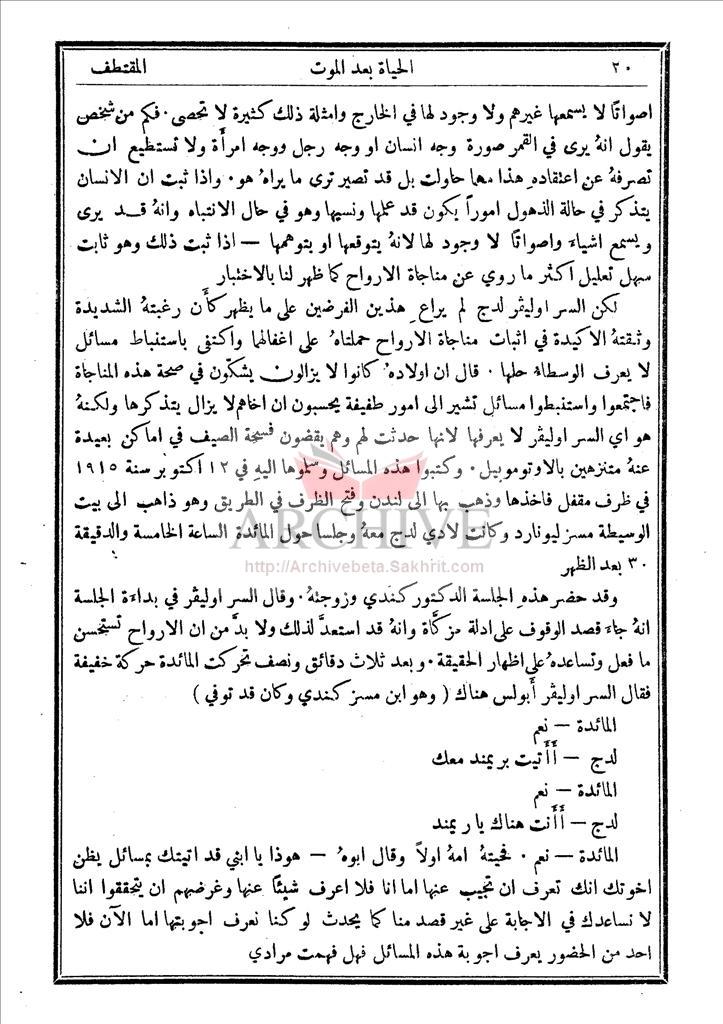 ٢٠ الحياة بعد الموت المقتطف
اصواتًا لا يسمعها غيرهم ولا وجود لها في الخارج وامثلة ذلك كثيرة لا تحصى . فكم من شخص
يقول انهُ يرى في القمر صورة وجه انسان او وجه رجل ووجه امرأَة ولا تستطيع ان
تصرفهُ عن اعتقاده هذا مهما حاولت بل قد تصير ترى ما يراه هو . واذا ثبت ان الانسان
يتذكر في حالة الذهول اموراً يكون قد عملها ونسيها وهو في حال الانتباه وانهُ قد يرى
ويسمع اشياءَ واصواتًا لا وجود لها لانهُ يتوقعها او يتوهمها — اذا ثبت ذلك وهو ثابت
سهل تعليل اكثر ما روي عن مناجاة الارواح كما ظهر لنا بالاختبار
لكن السر اوليڤر لدج لم يراعِ هذين الفرضين على ما يظهر كأَن رغبتهُ الشديدة
وثقتهُ الاكيدة في اثبات مناجاة الارواح حملتاهُ على اغفالهما واكتفى باستنباط مسائل
لا يعرف الوسطاء حلها . قال ان اولادهُ كانوا لا يزالون يشكّون في صحة هذه المناجاة
فاجتمعوا واستنبطوا مسائل تشير الى امور طفيفة يحسبون ان اخاهم لا يزال يتذكرها ولكنهُ
هو اي السر اوليڤر لا يعرفها لانها حدثت لهم وهم يقضون فسحة الصيف في اماكن بعيدة
عنهُ متنزهين بالاوتوموبيل . وكتبوا هذه المسائل وسلموها اليهِ في ١٢ اكتوبر سنة ١٩١٥
في ظرف مقفل فاخذها وذهب بها الى لندن وفتح الظرف في الطريق وهو ذاهب الى بيت
الوسيطة مسز ليونارد وكانت لادي لدج معهُ وجلسا حول المائدة الساعة الخامسة والدقيقة
٣٠ بعد الظهر
ARCHIVE
http://Archivebeta.Sakhrit.com
وقد حضر هذهِ الجلسة الدكتور كندي وزوجتهُ . وقال السر اوليڤر في بداءة الجلسة
انهُ جاءَ قصد الوقوف على ادلة مزكَّاة وانهُ قد استعدَّ لذلك ولا بدَّ من ان الارواح تستحسن
ما فعل وتساعدهُ على اظهار الحقيقة . وبعد ثلاث دقائق ونصف تحركت المائدة حركة خفيفة
فقال السر اوليڤر أَبولس هناك ( وهو ابن مسز كندي وكان قد توفي )
المائدة — نعم
لدج — أَأَتيت بريمند معك
المائدة — نعم
لدج — أَأَنت هناك يا ريمند
المائدة — نعم . فحيتهُ امهُ اولاً وقال ابوهُ — هوذا يا ابني قد اتيتك بمسائل يظن
اخوتك انك تعرف ان تجيب عنها اما انا فلا اعرف شيئًا عنها وغرضهم ان يتحققوا اننا
لا نساعدك في الاجابة على غير قصد منا كما يحدث لو كنا نعرف اجوبتها اما الآن فلا
احد من الحضور يعرف اجوبة هذه المسائل فهل فهمت مرادي